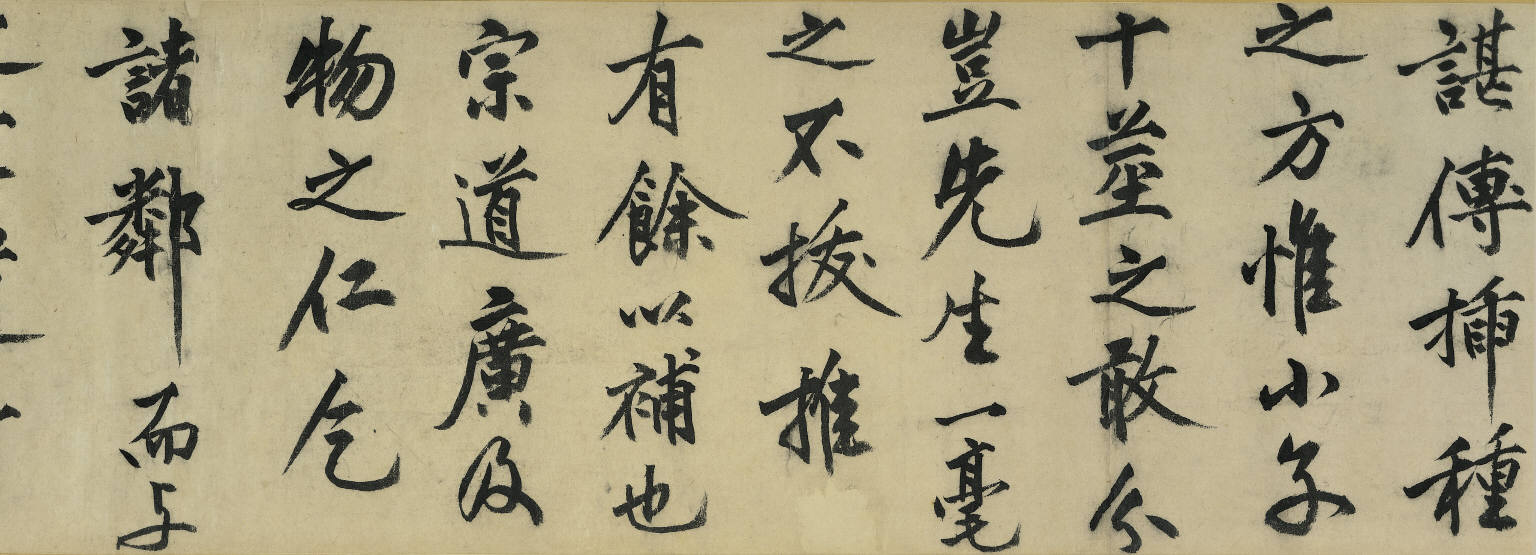 諶傳揷種
之方惟小子
十莖之敢分
豈先生一毫
之不拔推
有餘以補也
宗道廣及
物之仁乞
諸鄰而与